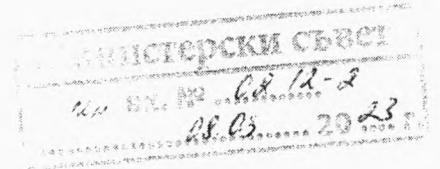 МИНИСТЕРСКИ СЪВЕТ
вх. № 08.12-2
08.03. 2023 г.